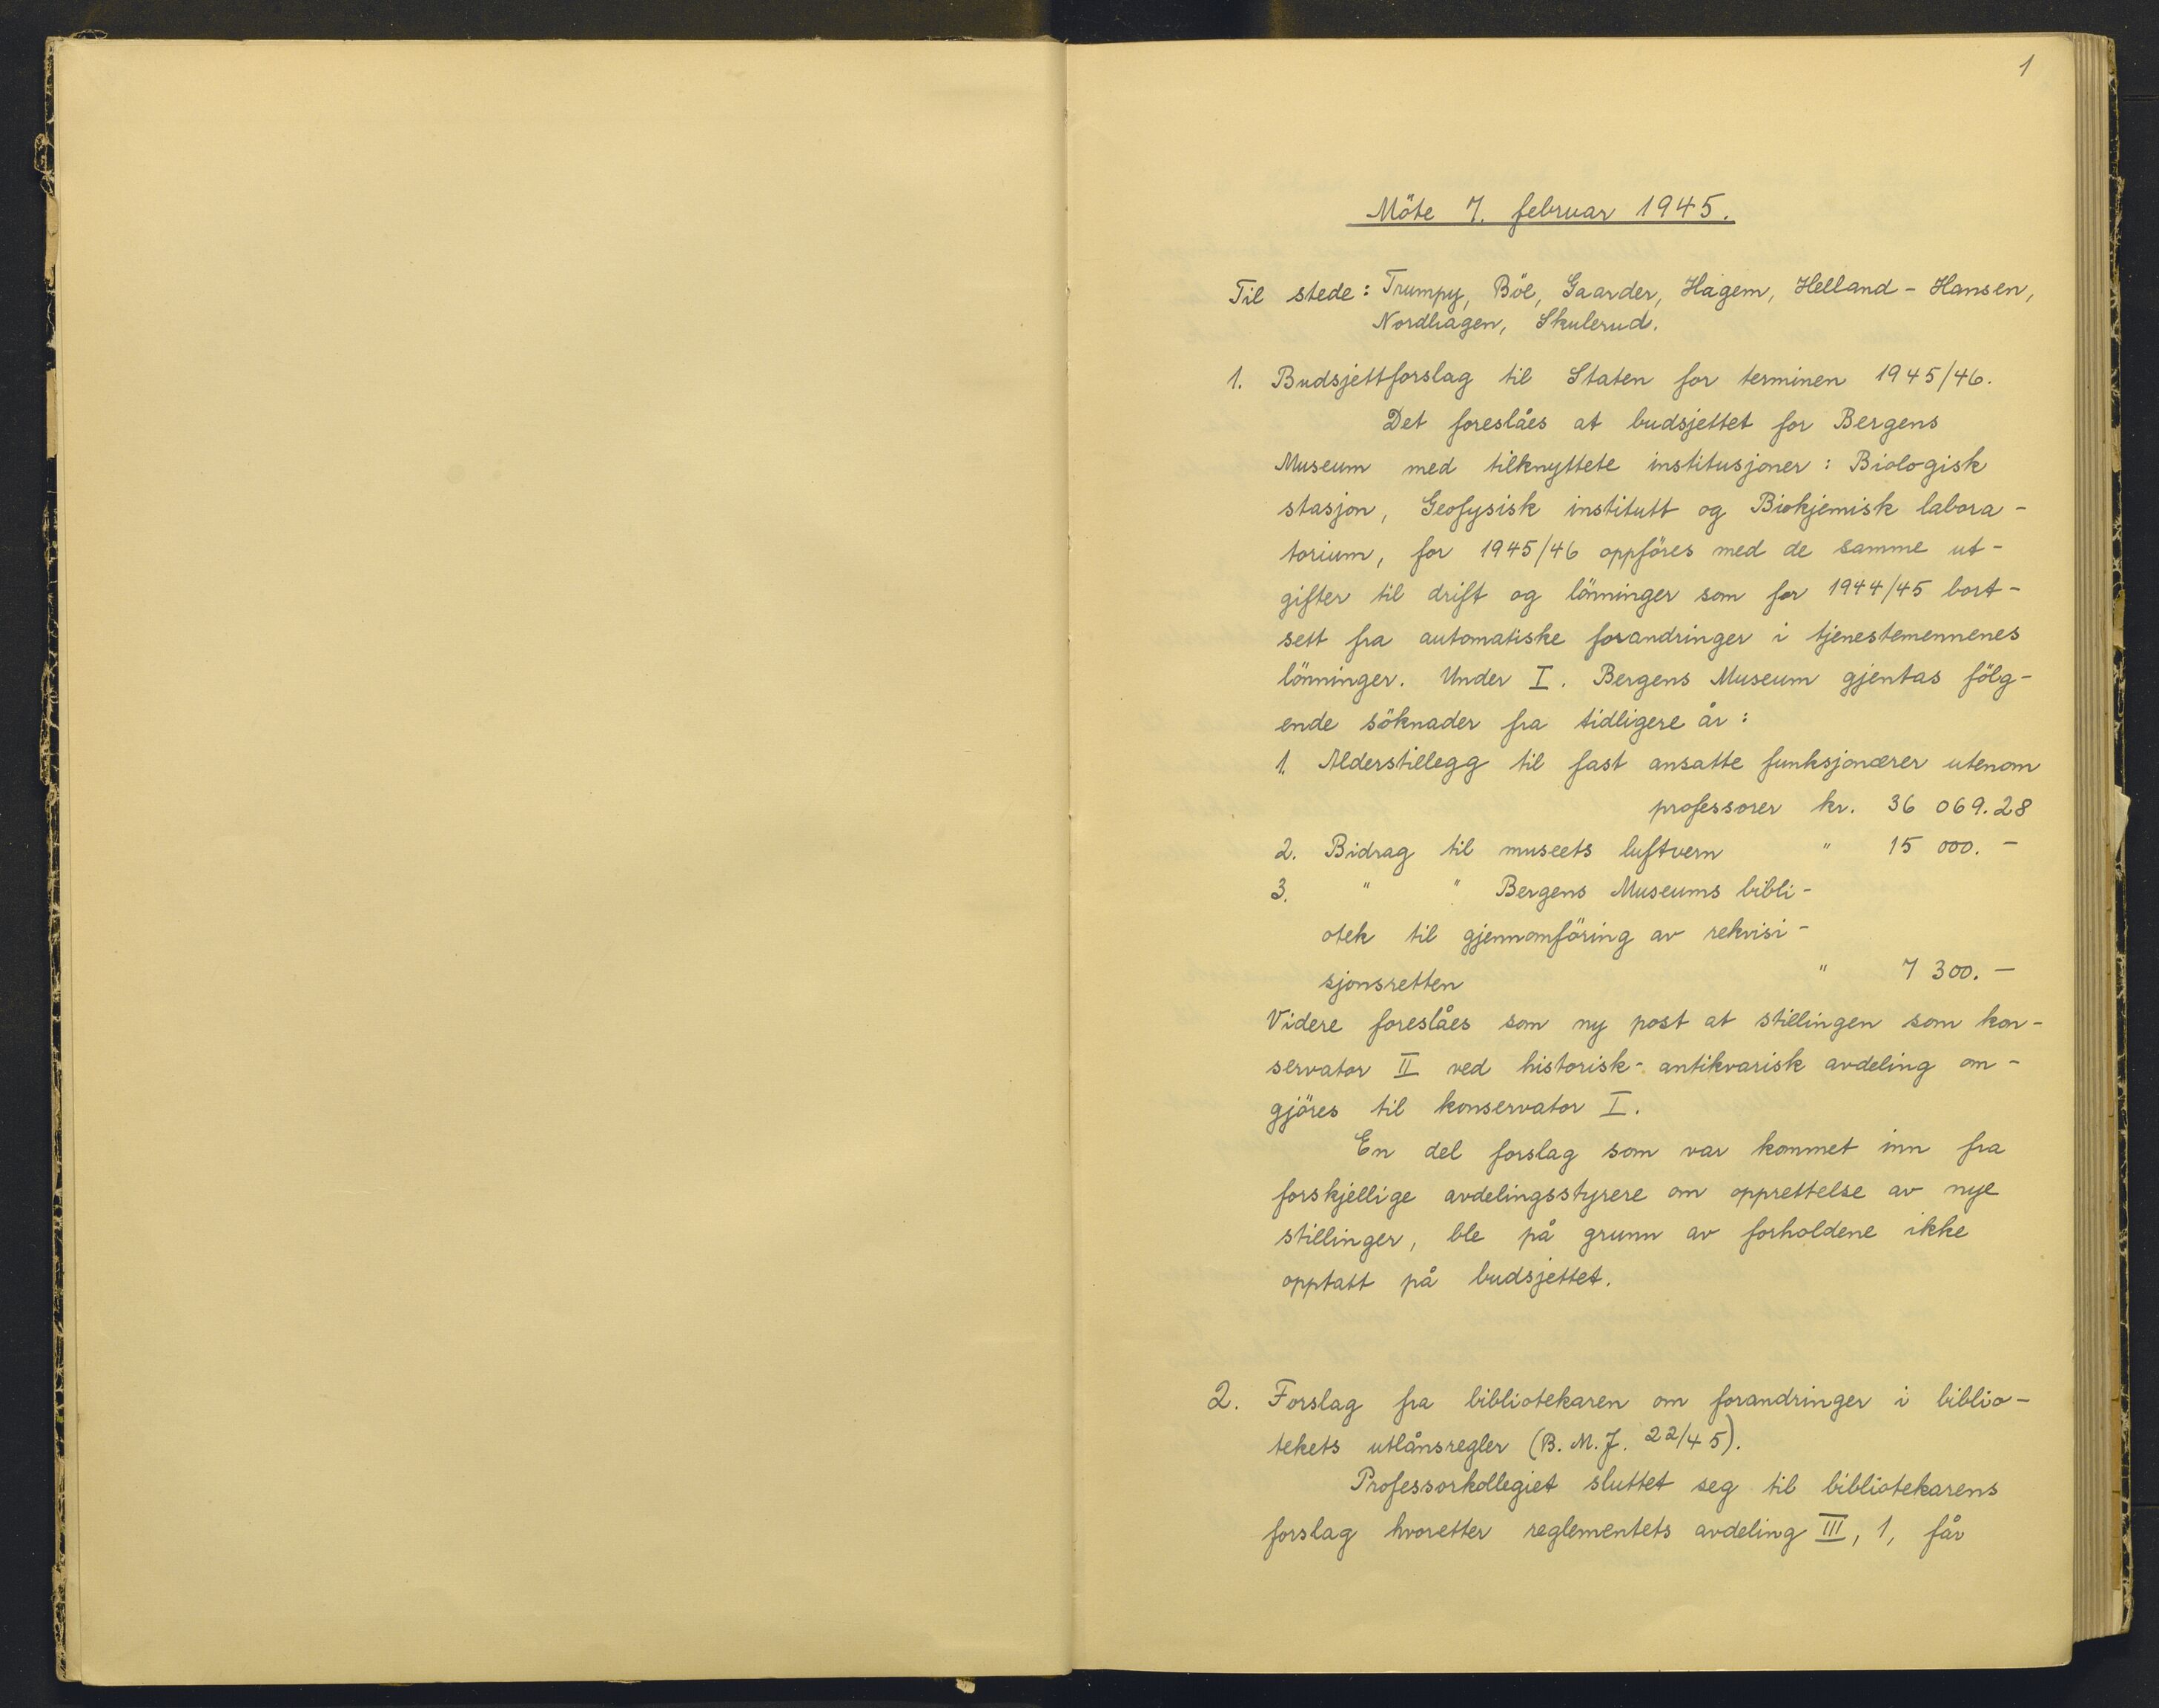 1
Möte 7. februar 1945.
Til stede: Trumpy, Böe, Gaarder, Hagem, Helland-Hansen,
Nordhagen, Skulerud.
1. Budsjettforslag til Staten for terminen 1945/46.
Det foreslåes at budsjettet for Bergens
Museum med tilknyttete institusjoner: Biologisk
stasjon, Geofysisk institutt og Biokjemisk labora-
torium, for 1945/46 oppföres med de samme ut-
gifter til drift og lönninger som for 1944/45 bort-
sett fra automatiske forandringer i tjenestemennenes
lönninger. Under I. Bergens Museum gjentas fölg-
ende söknader fra tidligere år:
1. Alderstillegg til fast ansatte funksjonærer utenom
professorer kr. 36 069.28
2. Bidrag til museets luftvern " 15 000. -
3. " " Bergens Museums bibli-
otek til gjennomföring av rekvisi-
sjonsretten " 7 300. -
Videre foreslåes som ny post at stillingen som kon-
servator II ved historisk-antikvarisk avdeling om-
gjöres til konservator I.
En del forslag som var kommet inn fra
forskjellige avdelingsstyrere om opprettelse av nye
stillinger, ble på grunn av forholdene ikke
opptatt på budsjettet.
2. Forslag fra bibliotekaren om forandringer i biblio-
tekets utlånsregler (B. M. J. 22/45).
Professorkollegiet sluttet seg til bibliotekarens
forslag hvoretter reglementets avdeling III, 1, får